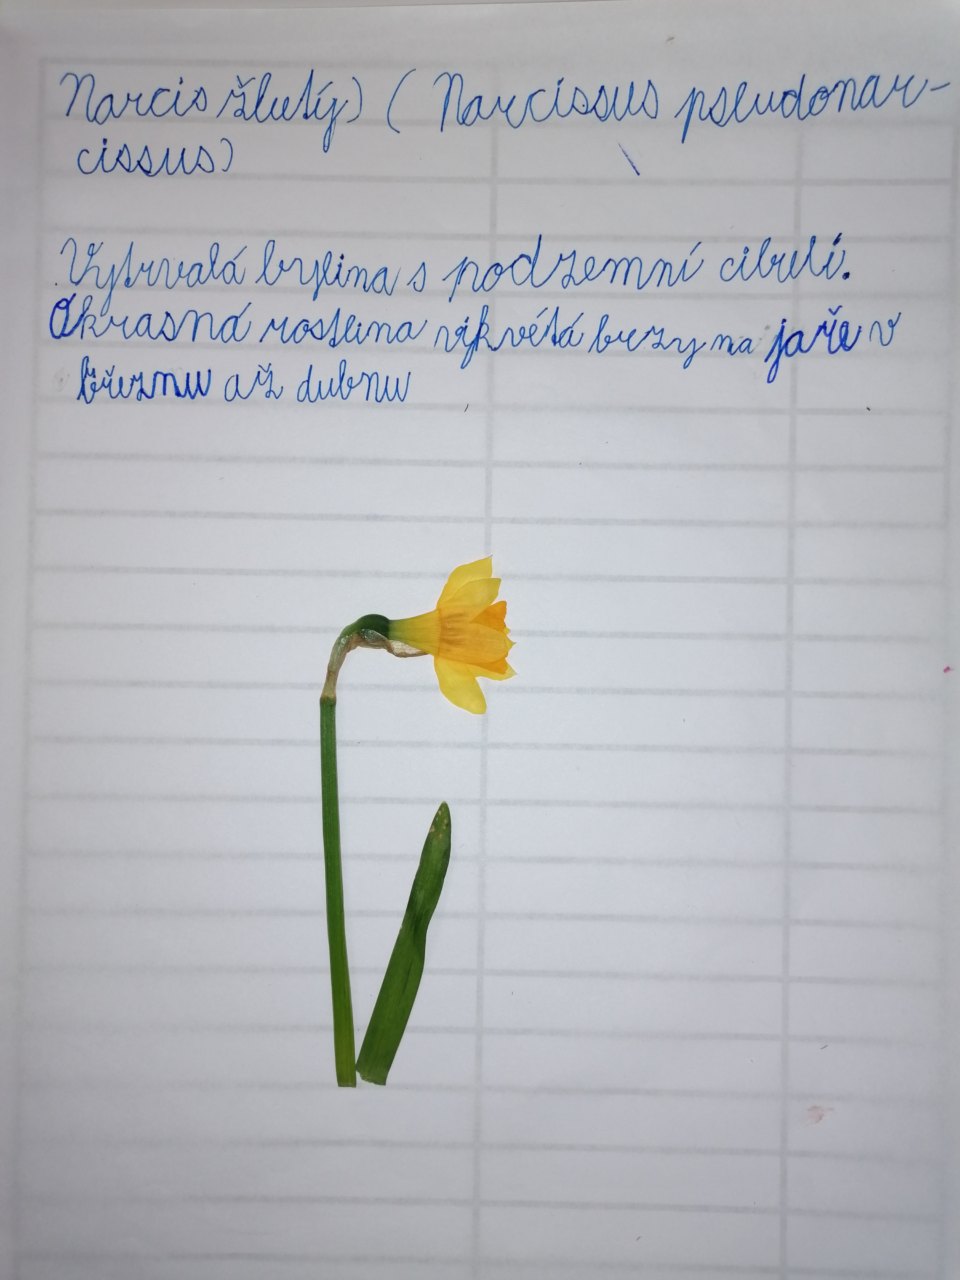 Narcis žlutý) ( Narcissus pseudonar-
cissus)
Vytrvalá bylina s podzemní cibulí.
Okrasná rostlina vykvétá brzy na jaře v
březnu až dubnu